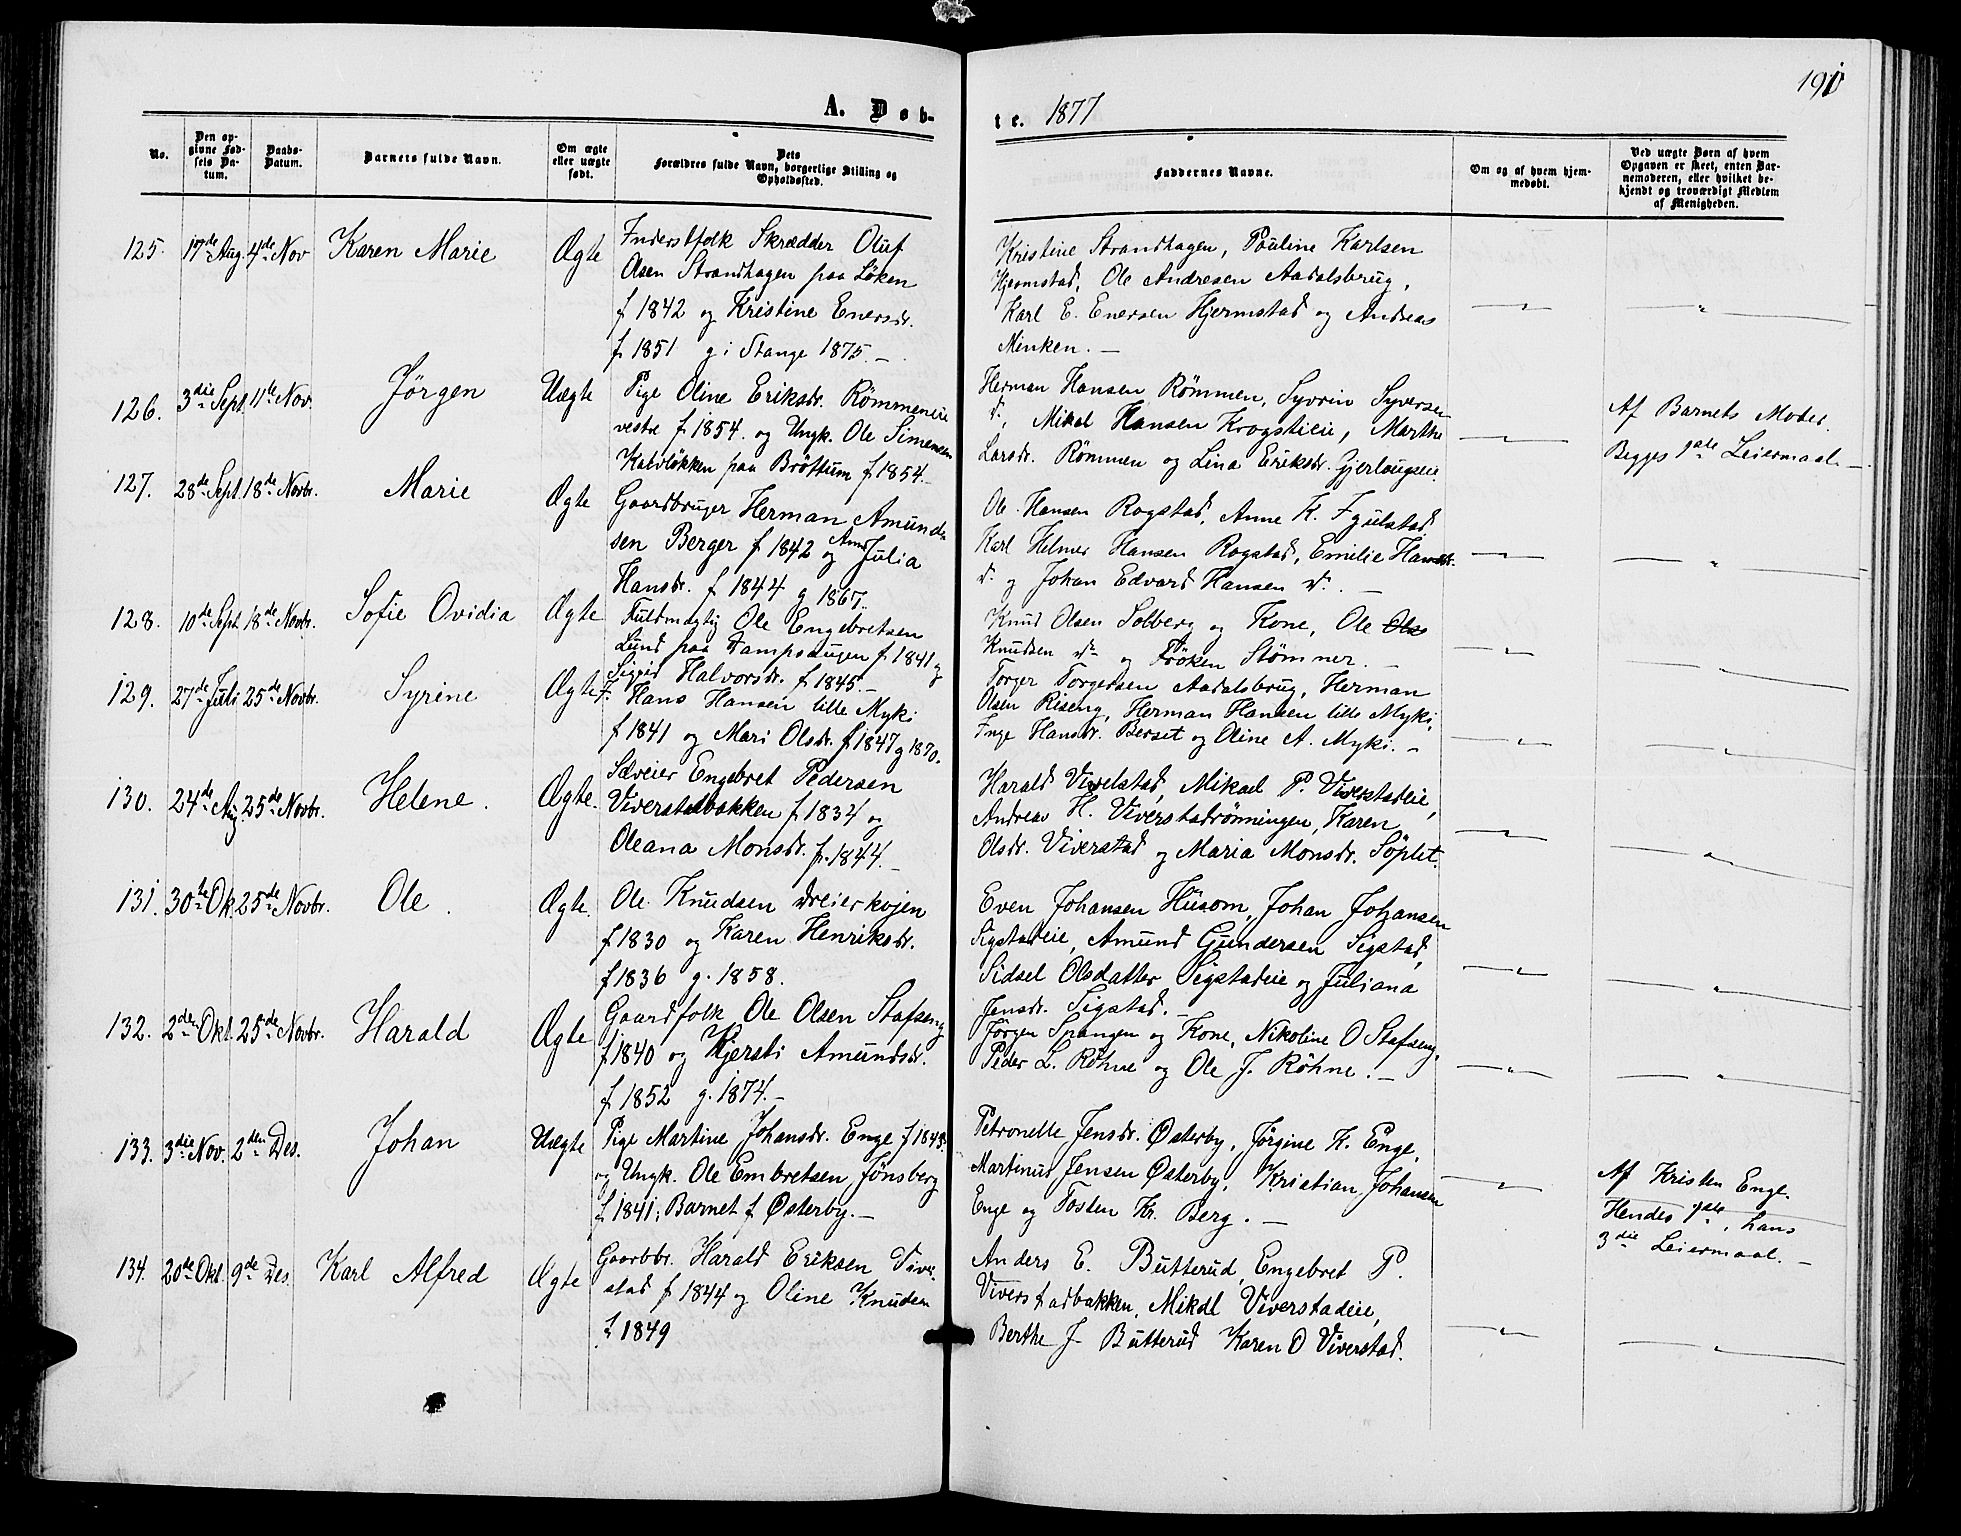 190
A. Døb-
te. 1877
No.
Den op-
givne Fød-
sels Da-
tum.
Daabs-
Datum.
Barnets fulde Navn.
Om ægte
eller uægte
født.
Dets
Forældres fulde Navn, borgerlige Stilling og
Opholdssted.
Faddernes Navne.
Om og af hvem hjem-
medøbt.
Ved uægte Børn af hvem
Opgaven er skeet, enten Bar-
nemoderen, eller hvilket be-
kjendt og troværdigt Medlem
af Menigheden.
125. 17de Aug. 4de Nov Karen Marie Ægte
Inderstfolk Skrædder Oluf
Olsen Strandhagen paa Løken
f 1842 og Kristine Enersdr.
f 1851 g i Stange 1875.
Kristine Strandhagen, Pauline Karlsen
Hjermstad, Ole Andresen Aadalsbrug,
Karl E. Enersen Hjermstad og Andreas
Minken.
126. 3die Sept. 11te Nov. Jørgen Uægte
Pige Oline Eriksdr. Rømmeneie
vestre f 1854. og Ungk. Ole Simensen
Kalvløkken paa Brøttum f 1854.
Herman Hansen Rømmen, Syvrin Syversen
do, Mikal Hansen Krogstieie, Marthe
Larsdr. Rømmen og Lina Eriksdr. Gjerlaugseie.
Af Barnets Moder.
Begges 1ste Leiermaal.
127. 28de Sept. 18de Novbr. Marie Ægte
Gaardbruger Herman Amund-
sen Berger f 1842 og Anne Julia
Hansdr. f 1844 g 1867.
Ole Hansen Rogstad, Anne K. Fjulstad
Karl Helmer Hansen Rogstad, Emilie Hansdr.
do og Johan Edvard Hansen do.
128. 10de Sept. 18de Novbr. Sofie Ovidia Ægte
Fuldmægtig Ole Engebretsen
Lund paa Dampsaugen f 1841 og
Sigrid Halvorsdr. f 1845.
Knud Olsen Solberg og Kone, Ole Ols
Knudsen do og Frøken Stømner.
129. 27de Juli 25de Novbr. Syrine Ægte
F. Hans Hansen lille Myki
f 1841 og Mari Olsdr. f 1847 g 1870.
Torger Torgersen Aadalsbrug, Herman
Olsen Riseng, Herman Hansen lille Myki,
Inge Hansdr. Berset og Oline A. Myki.
130. 24de Aug. 25de Novbr. Helene. Ægte.
Sæveier Engebret Pedersen
Viverstadbakken f 1834 og
Oleana Monsdr. f. 1844.
Harald Vivelstad, Mikael P. Viverstadeie,
Andreas H. Viverstadrønningen, Karen
Olsdr. Viverstad og Maria Monsdr. Søplet.
131. 30te Ok. 25de Novbr. Ole. Ægte.
Ole Knudsen Dreierkojen
f 1830 og Karen Henriksdr.
f 1836 g. 1858.
Even Johansen Husom, Johan Johansen
Sigstadeie, Amund Gundersen Sigstad,
Sidsel Olsdatter Sigstadeie og Juliana
Jensdr. Sigstad.
132. 2den Okt. 25de Novbr. Harald Ægte
Gaardfolk Ole Olsen Stafseng
f 1840 og Kjersti Amundsdr.
f 1852 g. 1874.
Jørgen Spangen og Kone, Nikoline O Stafseng,
Peder L. Røhne og Ole J. Røhne.
133. 3die Nov. 2den Des. Johan Uægte
Pige Martine Johansdr. Enge f 1843.
og Ungk. Ole Embretsen Jønsberg
f 1841; Barnet f. Østerby.
Petronelle Jensdr. Østerby, Jørgine K. Enge,
Martinus Jensen Østerby, Kristian Johansen
Enge og Tosten Kr. Berg.
Af Kristen Enge.
Hendes 1ste, hans
3die Leiermaal.
134. 20de Okt. 9de Des. Karl Alfred Ægte
Gaardbr. Harald Eriksen Viver-
stad f 1844 og Oline Knudsen
f 1849
Anders E. Butterud, Engebret P.
Viverstadbakken, Mikal Viverstadeie,
Berthe J Butterud Karen O Viverstad.